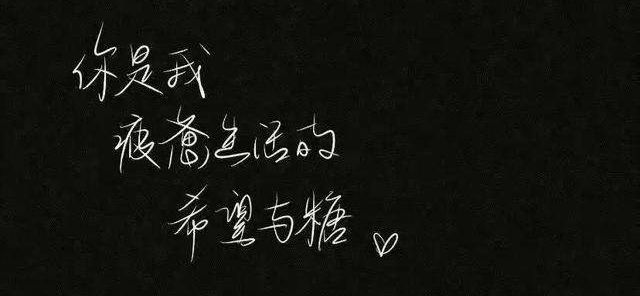 你是我
疲惫生活的
希望与糖